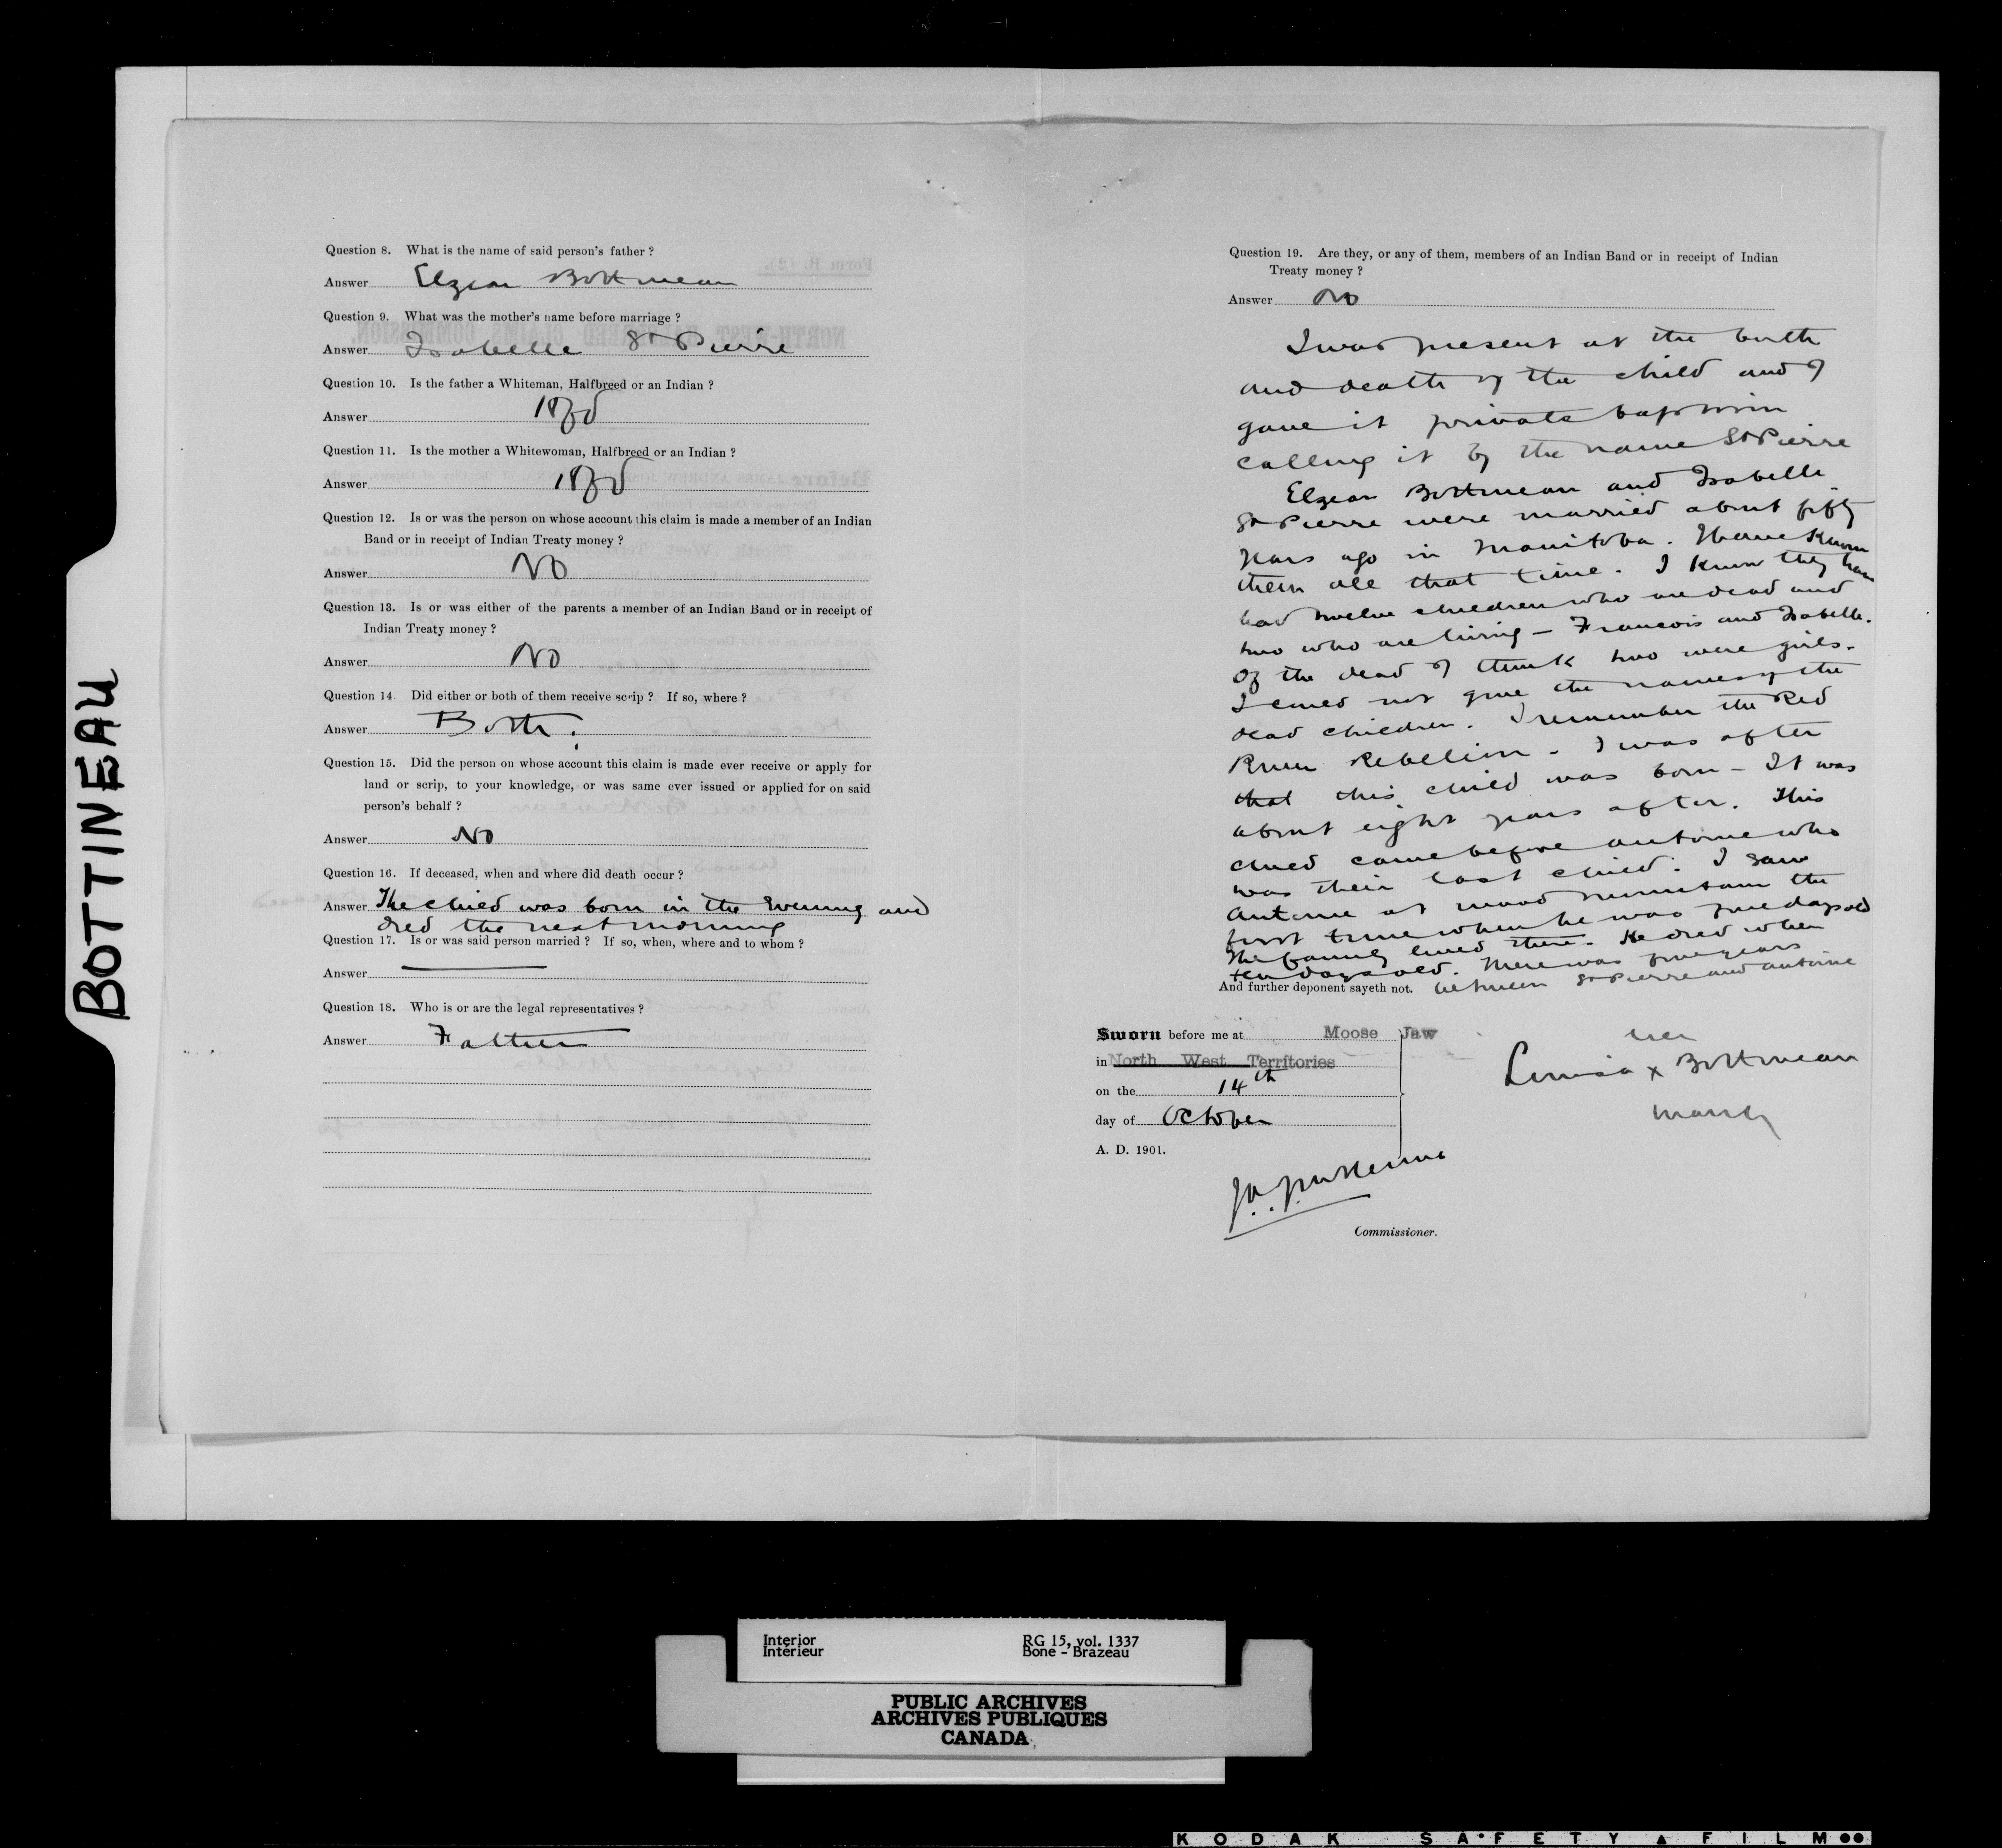 BOTTINEAU
Question 8. What is the name of said person's father ?
Answer Elzear Bottineau
Question 9. What was the mother's name before marriage ?
Answer Isabelle St Pierre
Question 10. Is the father a Whiteman, Halfbreed or an Indian ?
Answer HBd
Question 11. Is the mother a Whitewoman, Halfbreed or an Indian ?
Answer HBd
Question 12. Is or was the person on whose account this claim is made a member of an Indian
Band or in receipt of Indian Treaty money ?
Answer No
Question 13. Is or was either of the parents a member of an Indian Band or in receipt of
Indian Treaty money ?
Answer No
Question 14 Did either or both of them receive scrip ? If so, where ?
Answer Both.
Question 15. Did the person on whose account this claim is made ever receive or apply for
land or scrip, to your knowledge, or was same ever issued or applied for on said
person's behalf ?
Answer No
Question 16. If deceased, when and where did death occur ?
Answer The child was born in the Evening and
died the next morning
Question 17. Is or was said person married ? If so, when, where and to whom ?
Answer
Question 18. Who is or are the legal representatives ?
Answer Father
Question 19. Are they, or any of them, members of an Indian Band or in receipt of Indian
Treaty money ?
Answer No
I was present at the birth
and death of the child and I
gave it private baptism
calling it by the name St Pierre
Elzear Bottineau and Isabelle
St Pierre were married about fifty
years ago in Manitoba. I have known
them all that time. I know they have
had twelve children who are dead and
two who are living – Francois and Isabelle.
Of the dead I think two were girls.
I could not give the names of the
dead children. I remember the Red
River Rebellion – I was after
that this child was born – It was
about eight years after. This
child came before Antoine who
was their last child. I saw
Antoine at Wood Mountain the
first time when he was five days old
The family lived there. He died when
ten days old. There was five years
between St Pierre and Antoine
And further deponent sayeth not.
Sworn before me at Moose Jaw
in North West Territories
on the 14th
day of October
A. D. 1901.
her
Louisa x Bottineau
mark
J.A.J. McKenna
Commissioner.
Interior
Intérieur
RG 15, vol. 1337
Bone - Brazeau
PUBLIC ARCHIVES
ARCHIVES PUBLIQUES
CANADA
KODAK SAFETY FILM